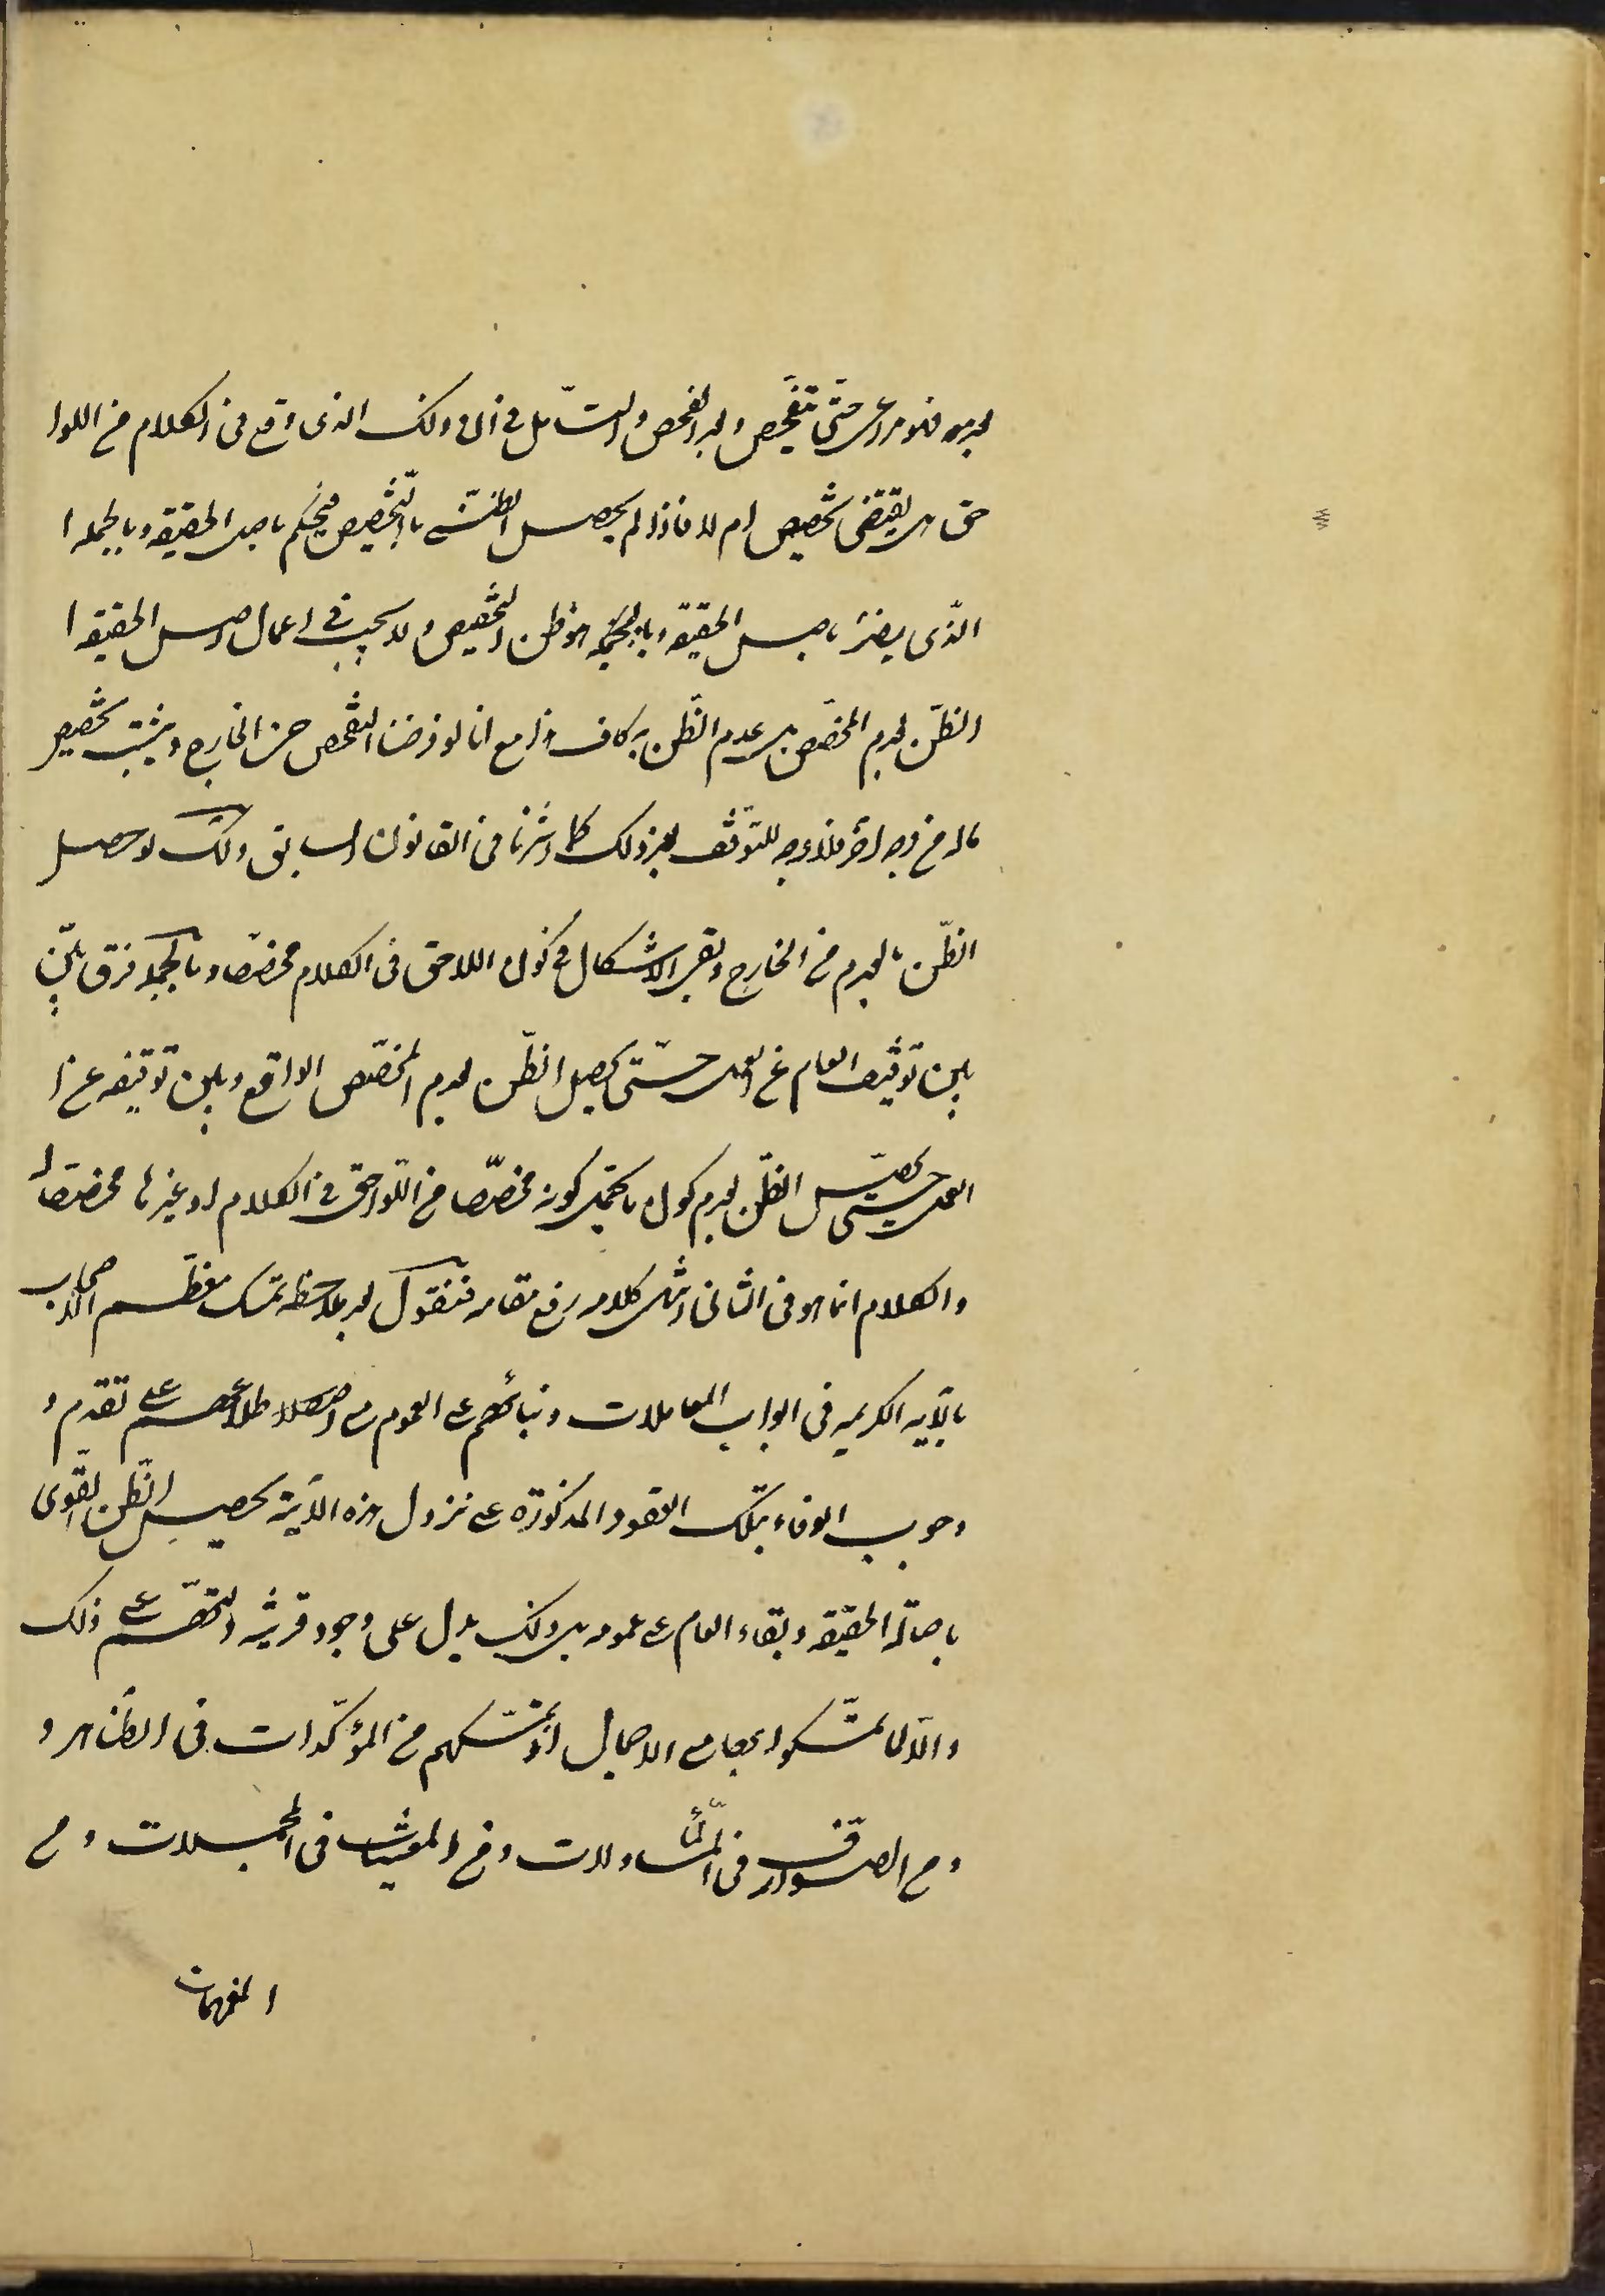 فهو مراعى حتى تتفحص وبعد الفحص والتأمل في ان ذلك الذي وقع في الكلام من اللوا
حق هل يقتضي تخصيص ام لا فاذا لم يحصل الظن بالتخصيص فيحكم باصل الحقيقة وبالجملة ا
الذي يضر باصل الحقيقة هو ظن التخصيص ولا يجب في اعمال اصل الحقيقة ا
الظن بعدم المخصص بل عدم الظن به كاف هذا مع انا لو فرضنا التفحص من الخارج ويثبت تخصيص
ما له من وجه اخر فلا وجه للتوقف بعد ذلك كما اشرنا في القانون السابق وكذلك لو حصل
الظن بالعدم من الخارج وبقي الاشكال في كون اللاحق في الكلام مخصصا وبالجملة فرق بين
بين توقيف العام عن العمل حتى يحصل الظن بعدم المخصص الواقع وبين توقيفه عن ا
العمل حتى يحصل الظن بعدم كون ما يحتمل كونه مخصصا من اللواحق في الكلام او غيرها مخصصا
والكلام انما هو في الثاني انتهى كلامه رفع مقامه فنقول بملاحظة تمسك معظم الاصحاب
بالآية الكريمة في ابواب المعاملات وبنائهم على العموم مع اطلاعهم على تقدم و
وجوب الوفاء بتلك العقود المذكورة على نزول هذه الآية يحصل الظن القوي
باصالة الحقيقة وبقاء العام على عمومه بل ذلك يدل على وجود قرينة على ذلك
والا لما تمسكوا بها مع الاجمال اذ تمسكهم من المؤكدات في الظاهر و
ومن الصوارف في المتأولات ومن المعينات في المجملات ومن
المفهمات